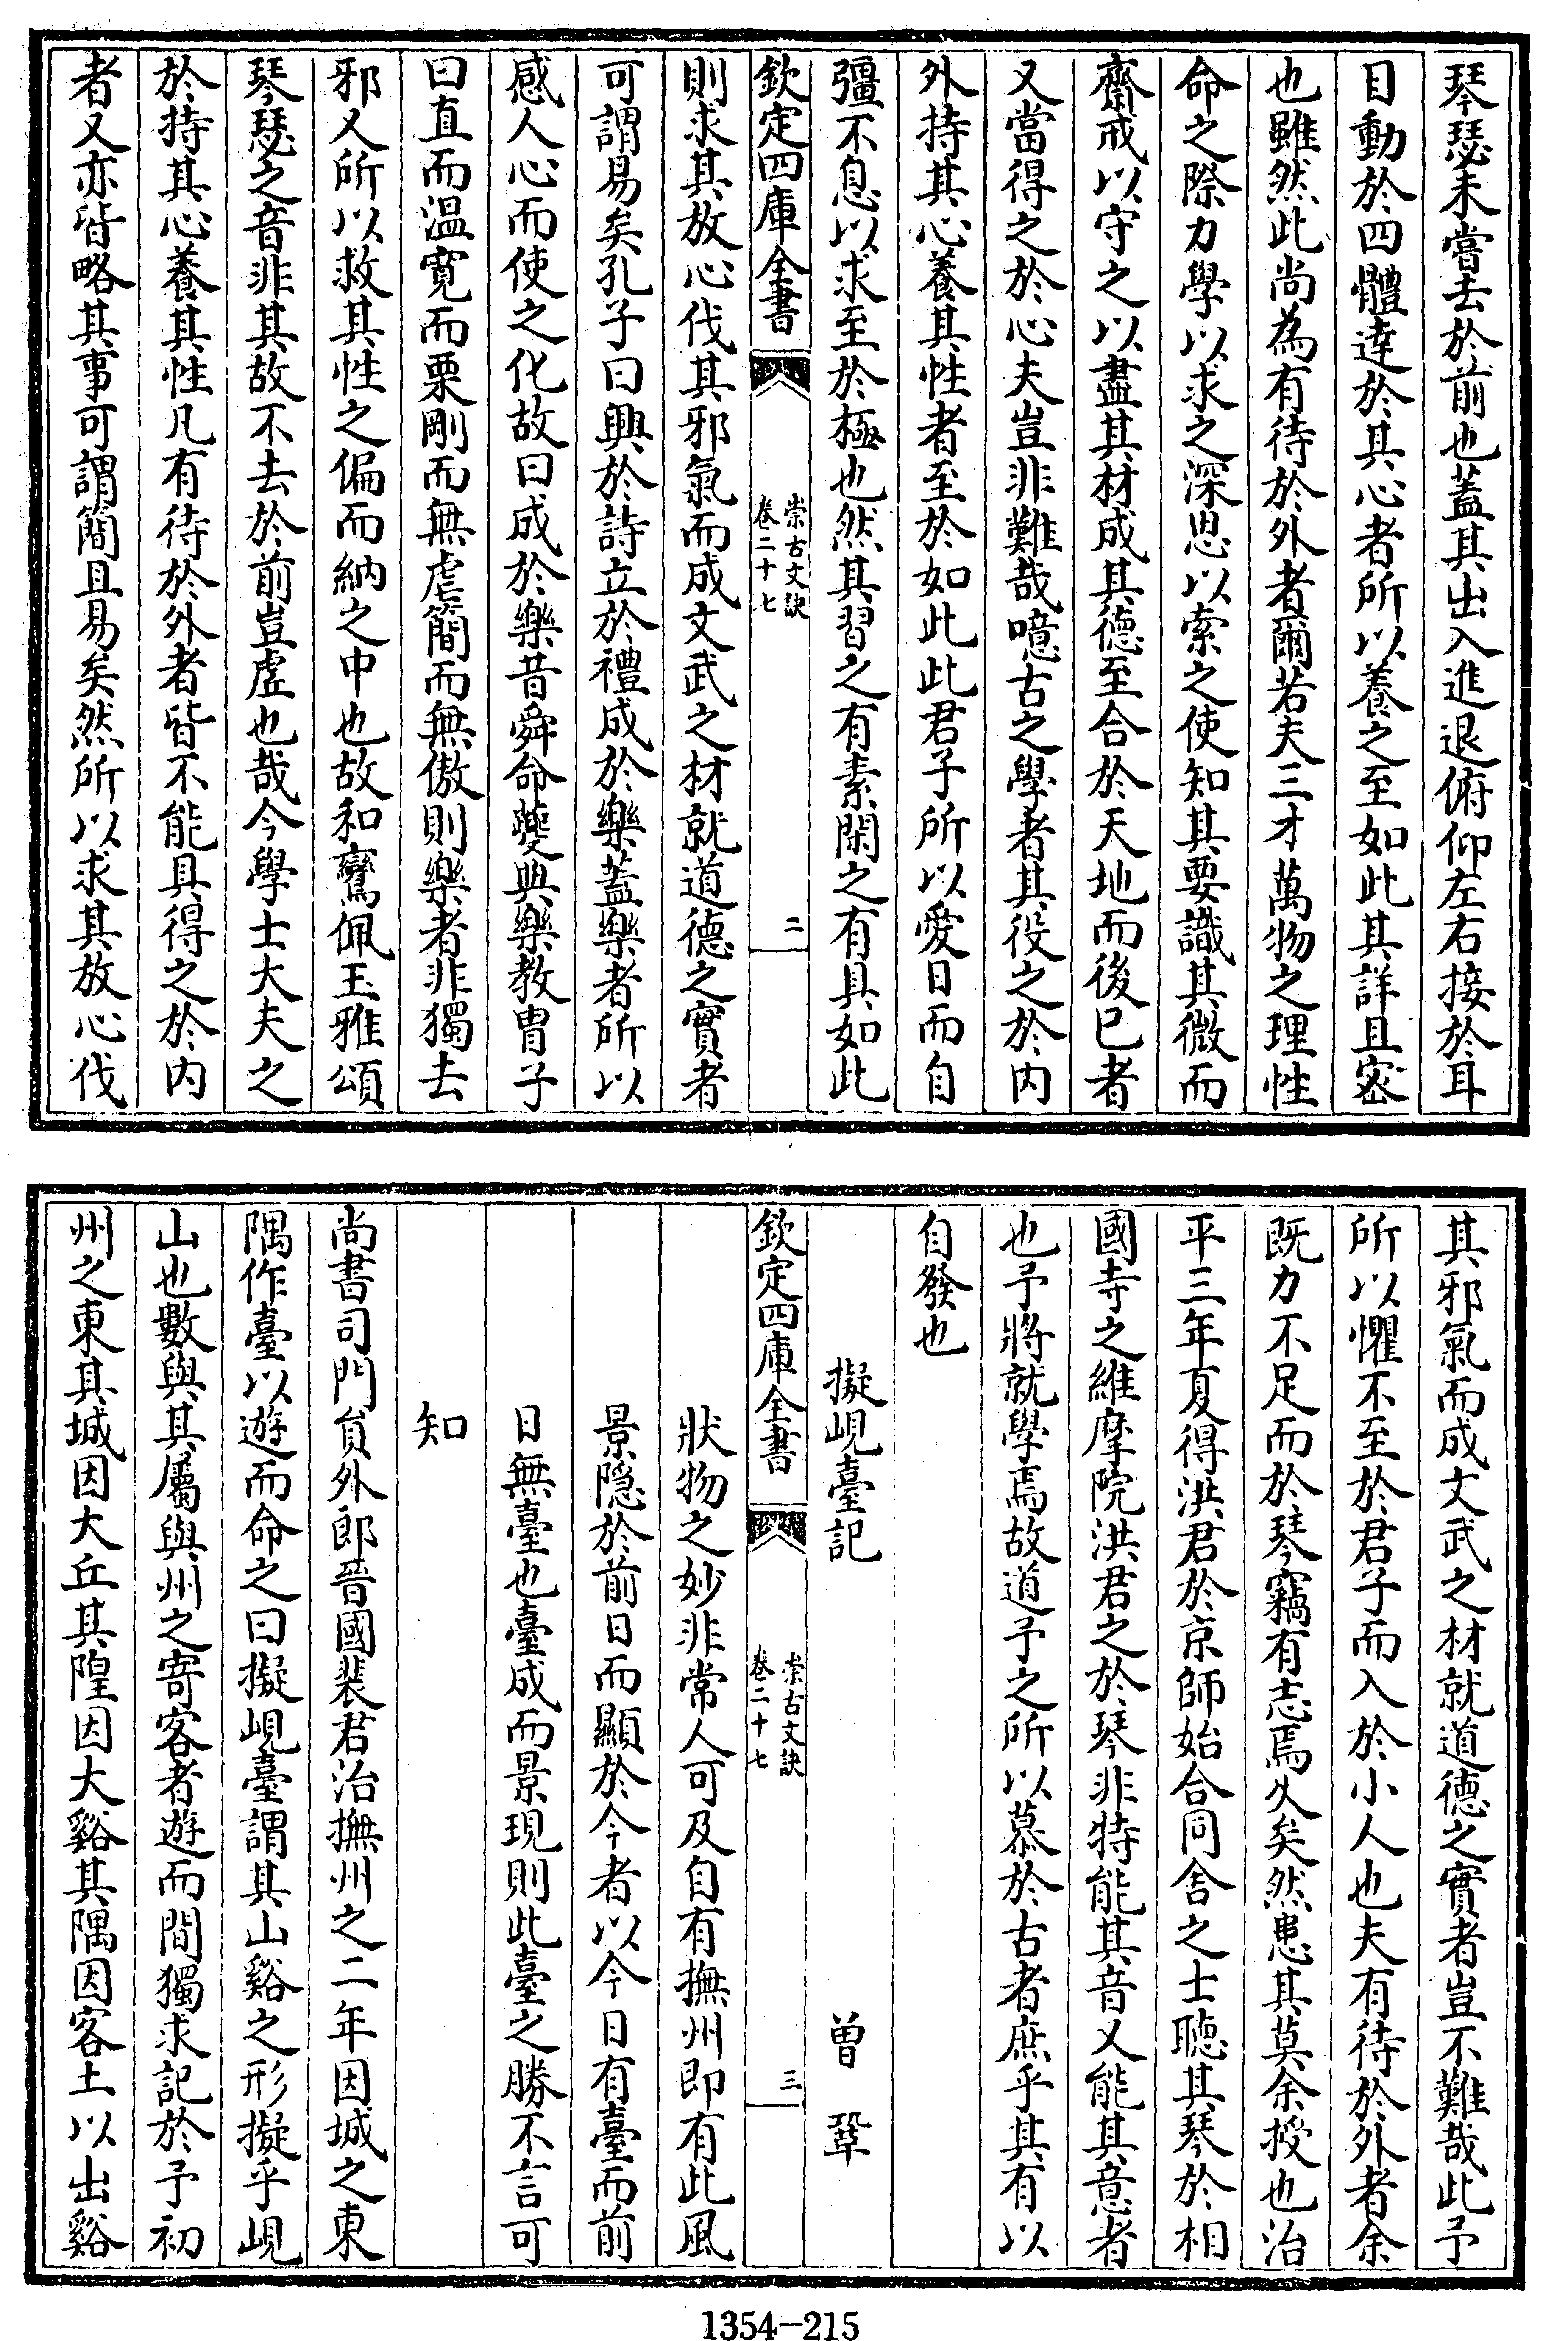 琴瑟未嘗去於前也蓋其出入進退俯仰左右接於耳
目動於四體達於其心者所以養之至如此其詳且密
也雖然此尚為有待於外者爾若夫三才萬物之理性
命之際力學以求之深思以索之使知其要識其微而
齋戒以守之以盡其材成其德至合於天地而後已者
又當得之於心夫豈非難哉噫古之學者其役之於内
外持其心養其性者至於如此此君子所以愛日而自
彊不息以求至於極也然其習之有素閑之有具如此
欽定四庫全書
崇古文訣
卷二十七
二
則求其放心伐其邪氣而成文武之材就道德之實者
可謂易矣孔子曰興於詩立於禮成於樂蓋樂者所以
感人心而使之化故曰成於樂昔舜命夔典樂教胄子
曰直而温寛而栗剛而無虐簡而無傲則樂者非獨去
邪又所以救其性之偏而納之中也故和鸞佩玉雅頌
琴瑟之音非其故不去於前豈虚也哉今學士大夫之
於持其心養其性凡有待於外者皆不能具得之於内
者又亦皆略其事可謂簡且易矣然所以求其放心伐
其邪氣而成文武之材就道德之實者豈不難哉此予
所以懼不至於君子而入於小人也夫有待於外者余
既力不足而於琴竊有志焉久矣然患其莫余授也治
平三年夏得洪君於京師始合同舍之士聽其琴於相
國寺之維摩院洪君之於琴非特能其音又能其意者
也予將就學焉故道予之所以慕於古者庶乎其有以
自發也
擬峴臺記
曾鞏
欽定四庫全書
崇古文訣
卷二十七
三
狀物之妙非常人可及自有撫州即有此風
景隱於前日而顯於今者以今日有臺而前
日無臺也臺成而景現則此臺之勝不言可
知
尚書司門貟外郎晉國裴君治撫州之二年因城之東
隅作臺以遊而命之曰擬峴臺謂其山谿之形擬乎峴
山也數與其屬與州之寄客者遊而間獨求記於予初
州之東其城因大丘其隍因大谿其隅因客土以出谿
1354-215